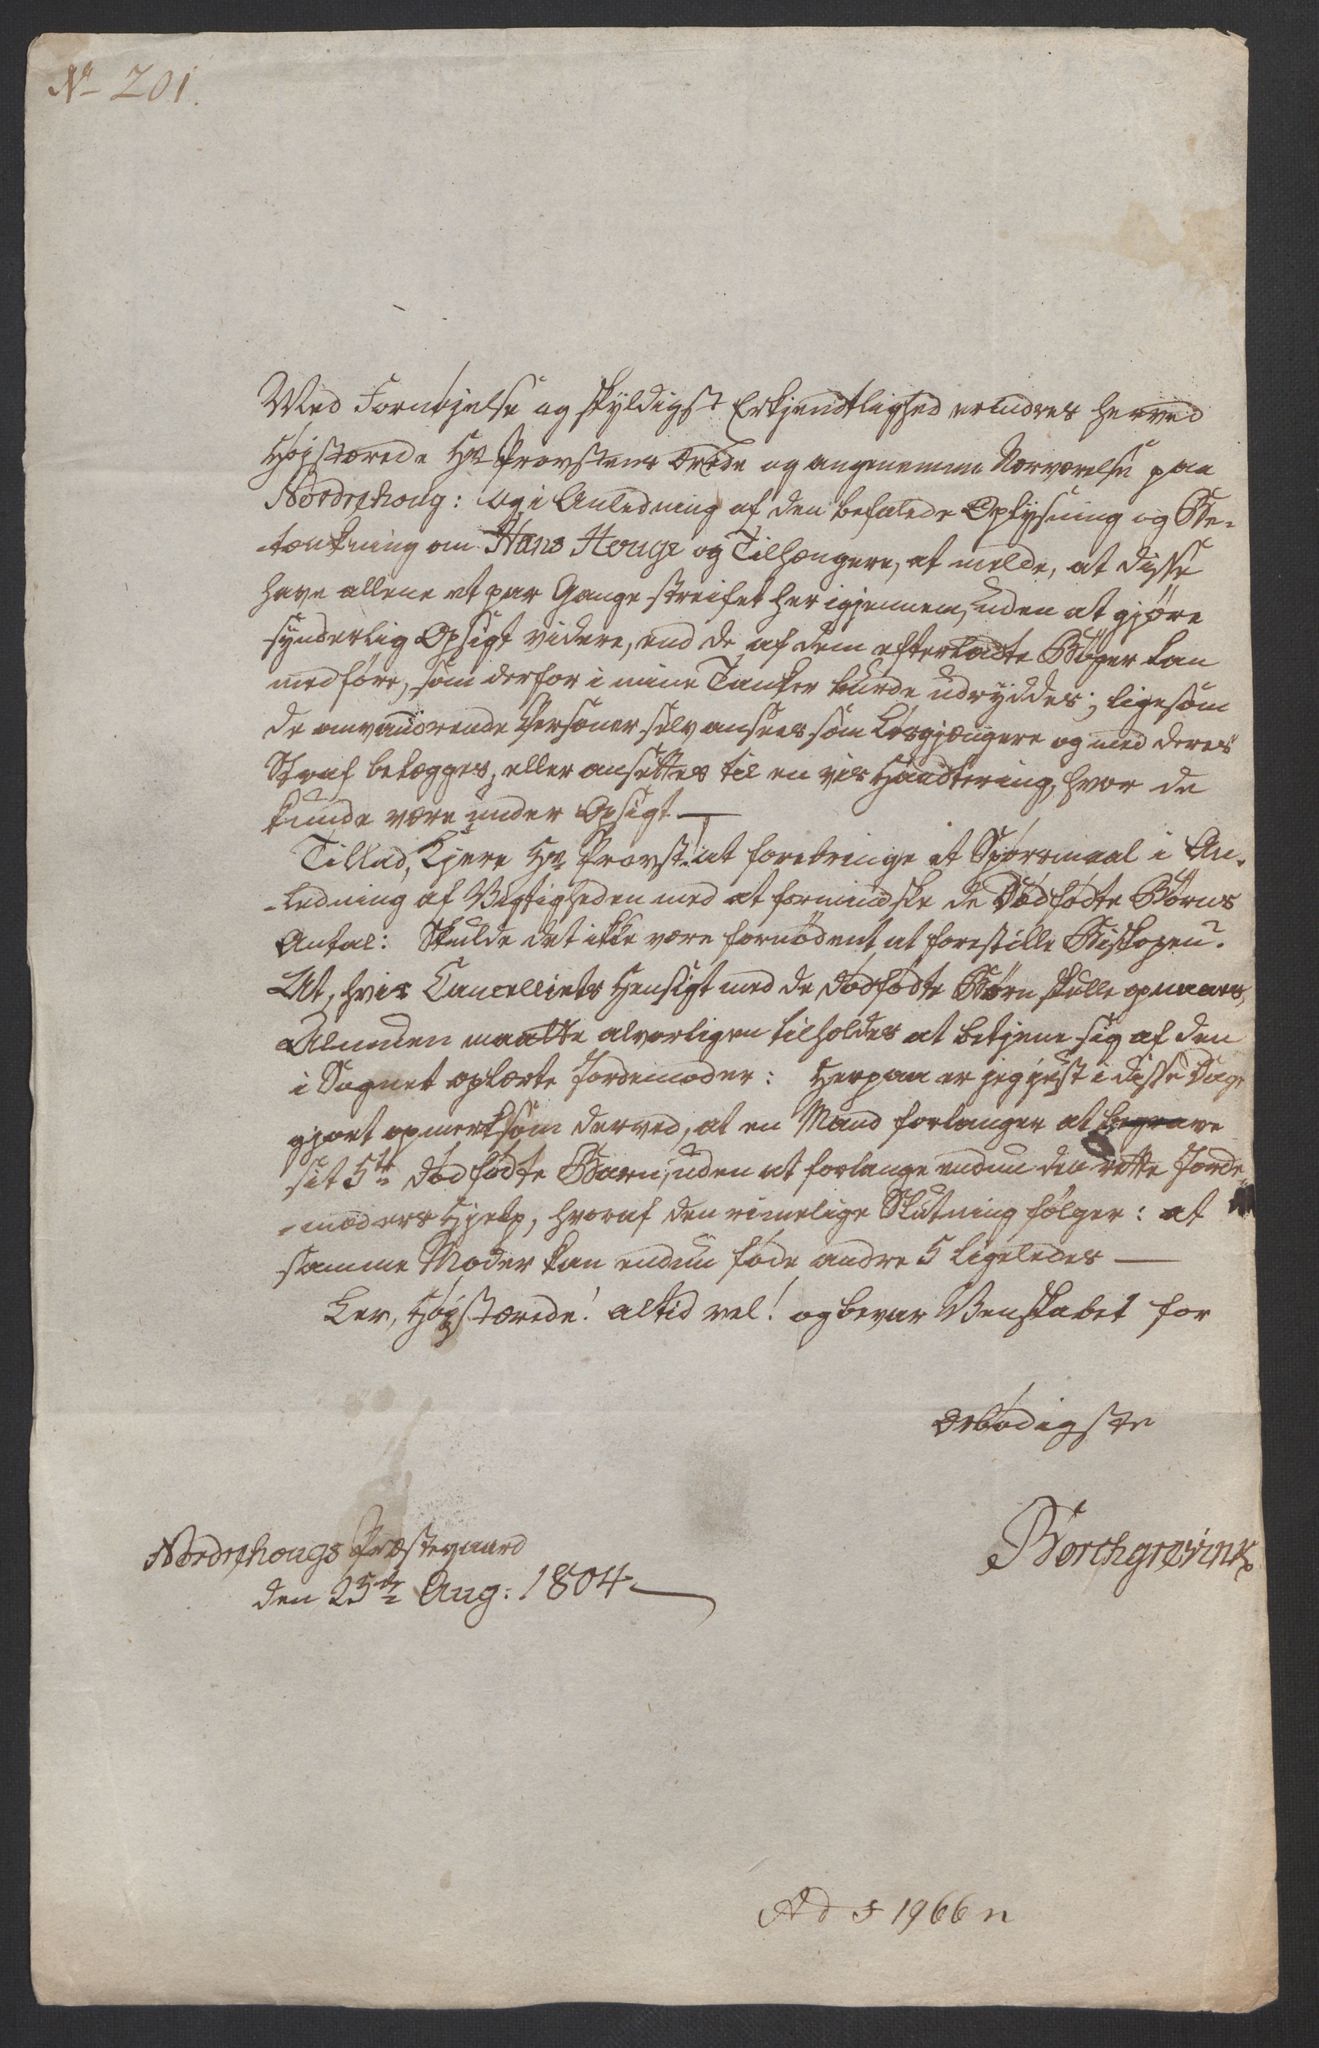 No 201.
Med Fornøjelse og skyldigst Erkjendtlighed erindres herved
Højstærede Hr Provstens ærede og angenemme Nærværelse paa
Norderhoug: og i Anledning af den befalede Oplysning og Be-
tænkning om Hans Houge og Tilhængere, at melde, at disse
have allene et par Gange streifet her igjennem, uden at gjøre
synderlig Opsigt videre, end de af dem efterladte Bøger kan
medføre, som derfor i mine Tanker burde udryddes; ligesom
de omvandrende Personer selv ansees som Løsgjængere og med deres
Straf belægges, eller ansettes til en vis Handtering, hvor de
kunde være under Opsigt —
Tillad, Kjere Hr Provst! at forebringe et Spørsmaal i An-
-ledning af Vigtigheden med at formindske de Dødfødte Børns
Antal: Skulde det ikke være fornødent at forestille Biskopen?
At, hvis Cancelliets Hensigt med de dødfødte Børn skulle opnaaes,
Almuen maatte alvorligen tilholdes at betjene sig af den
i Sognet oplærte Jordemoder: Herpaa er jeg just i disse Dage
gjort opmerksom derved, at en Mand forlanger at begrave
sit 5te dødfødte Barn, uden at forlange endnu den rette Jorde
-moders Hjelp, hvoraf den rimelige Slutning følger: at
samme Moder kan endnu føde andre 5 ligeledes —
Lev, Højstærede! altid vel! og bevar Venskabet for
ærbødigste
Borchgrevink
Norderhougs Præstegaard
den 25de Aug: 1804
Ad 1966